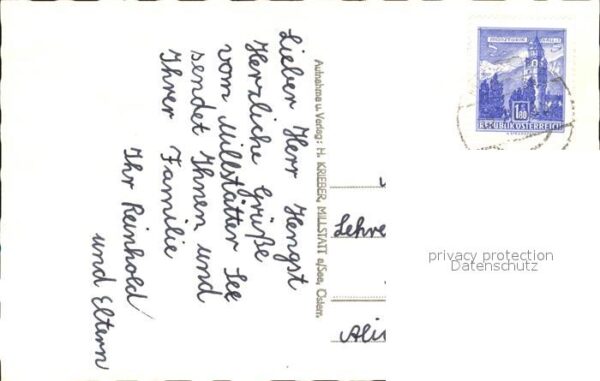 Lieber Herr Hengst
Herzliche Grüße
vom Millstätter See
sendet Ihnen und
Ihrer Familie
Ihr Reinhold
und Eltern
Aufnahme u. Verlag: H. KRIEBER, MILLSTATT a/See, Österr.
1.80
REPUBLIK ÖSTERREICH
Lehre
privacy protection
Datenschutz